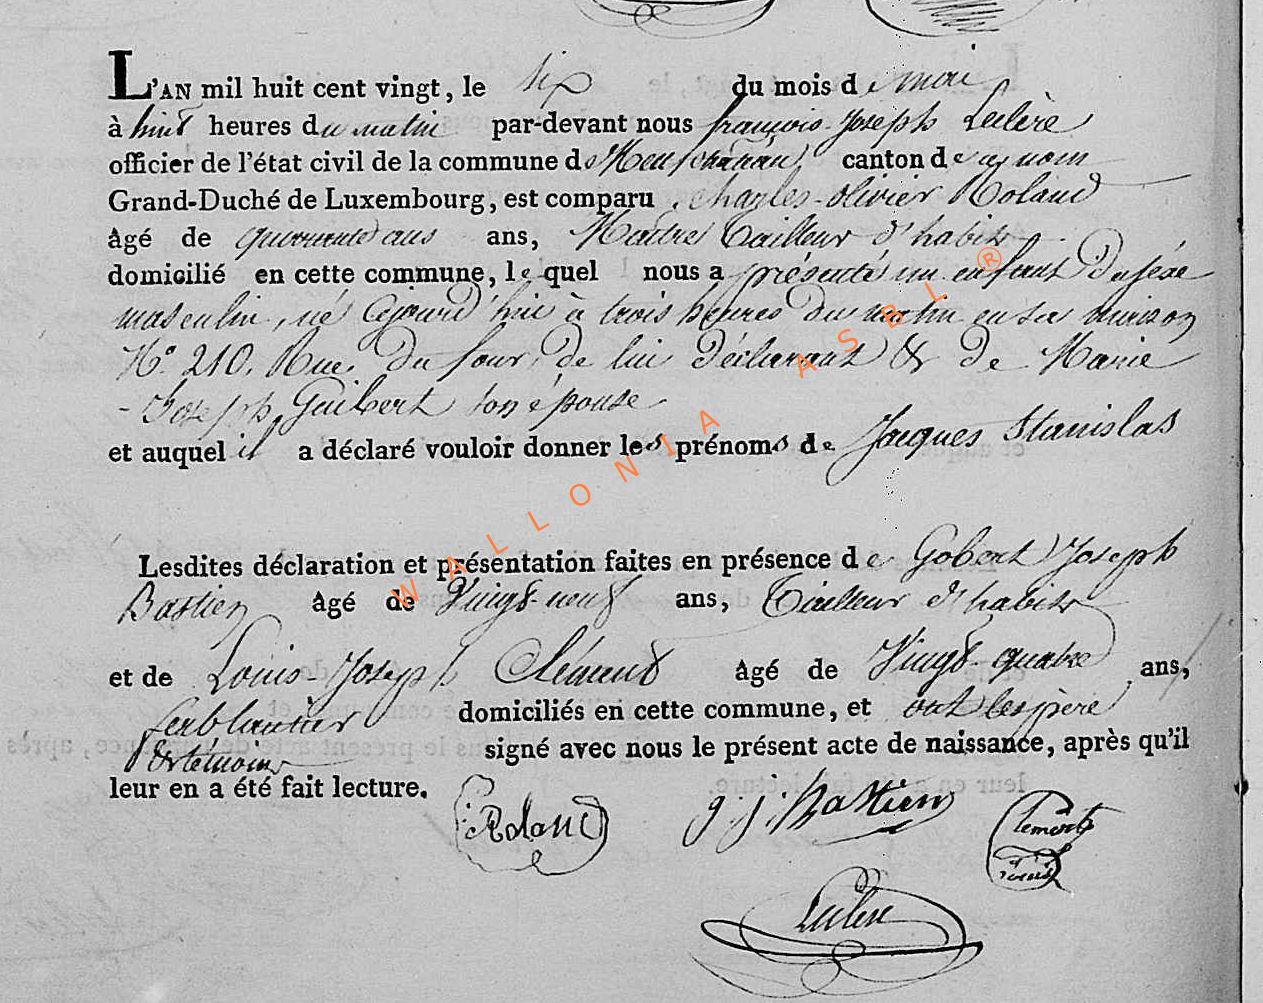 L'AN mil huit cent vingt, le six du mois de mai
à huit heures du matin par-devant nous françois-Joseph Leclère
officier de l'état civil de la commune de Neufchâteau, canton de ce nom
Grand-Duché de Luxembourg, est comparu Charles-olivier Roland
âgé de quarante ans ans, Maître Tailleur d'habits
domicilié en cette commune, lequel nous a présenté un enfant du sexe
masculin, né cejourd'hui à trois heures du matin en sa maison
N.° 210. Rue du four, de lui déclarant & de Marie
-Joseph Guilbert son épouse
et auquel il a déclaré vouloir donner les prénoms de Jacques Stanislas
Lesdites déclaration et présentation faites en présence de Gobert Joseph
Bastien âgé de Vingt-neuf ans, Tailleur d'habits
et de Louis-Joseph Clément âgé de Vingt-quatre ans,
ferblantier domiciliés en cette commune, et ont les père
& témoins signé avec nous le présent acte de naissance, après qu'il
leur en a été fait lecture.
Roland g. j. Bastien Clement
Leclère
WALLONIA ASBL ®